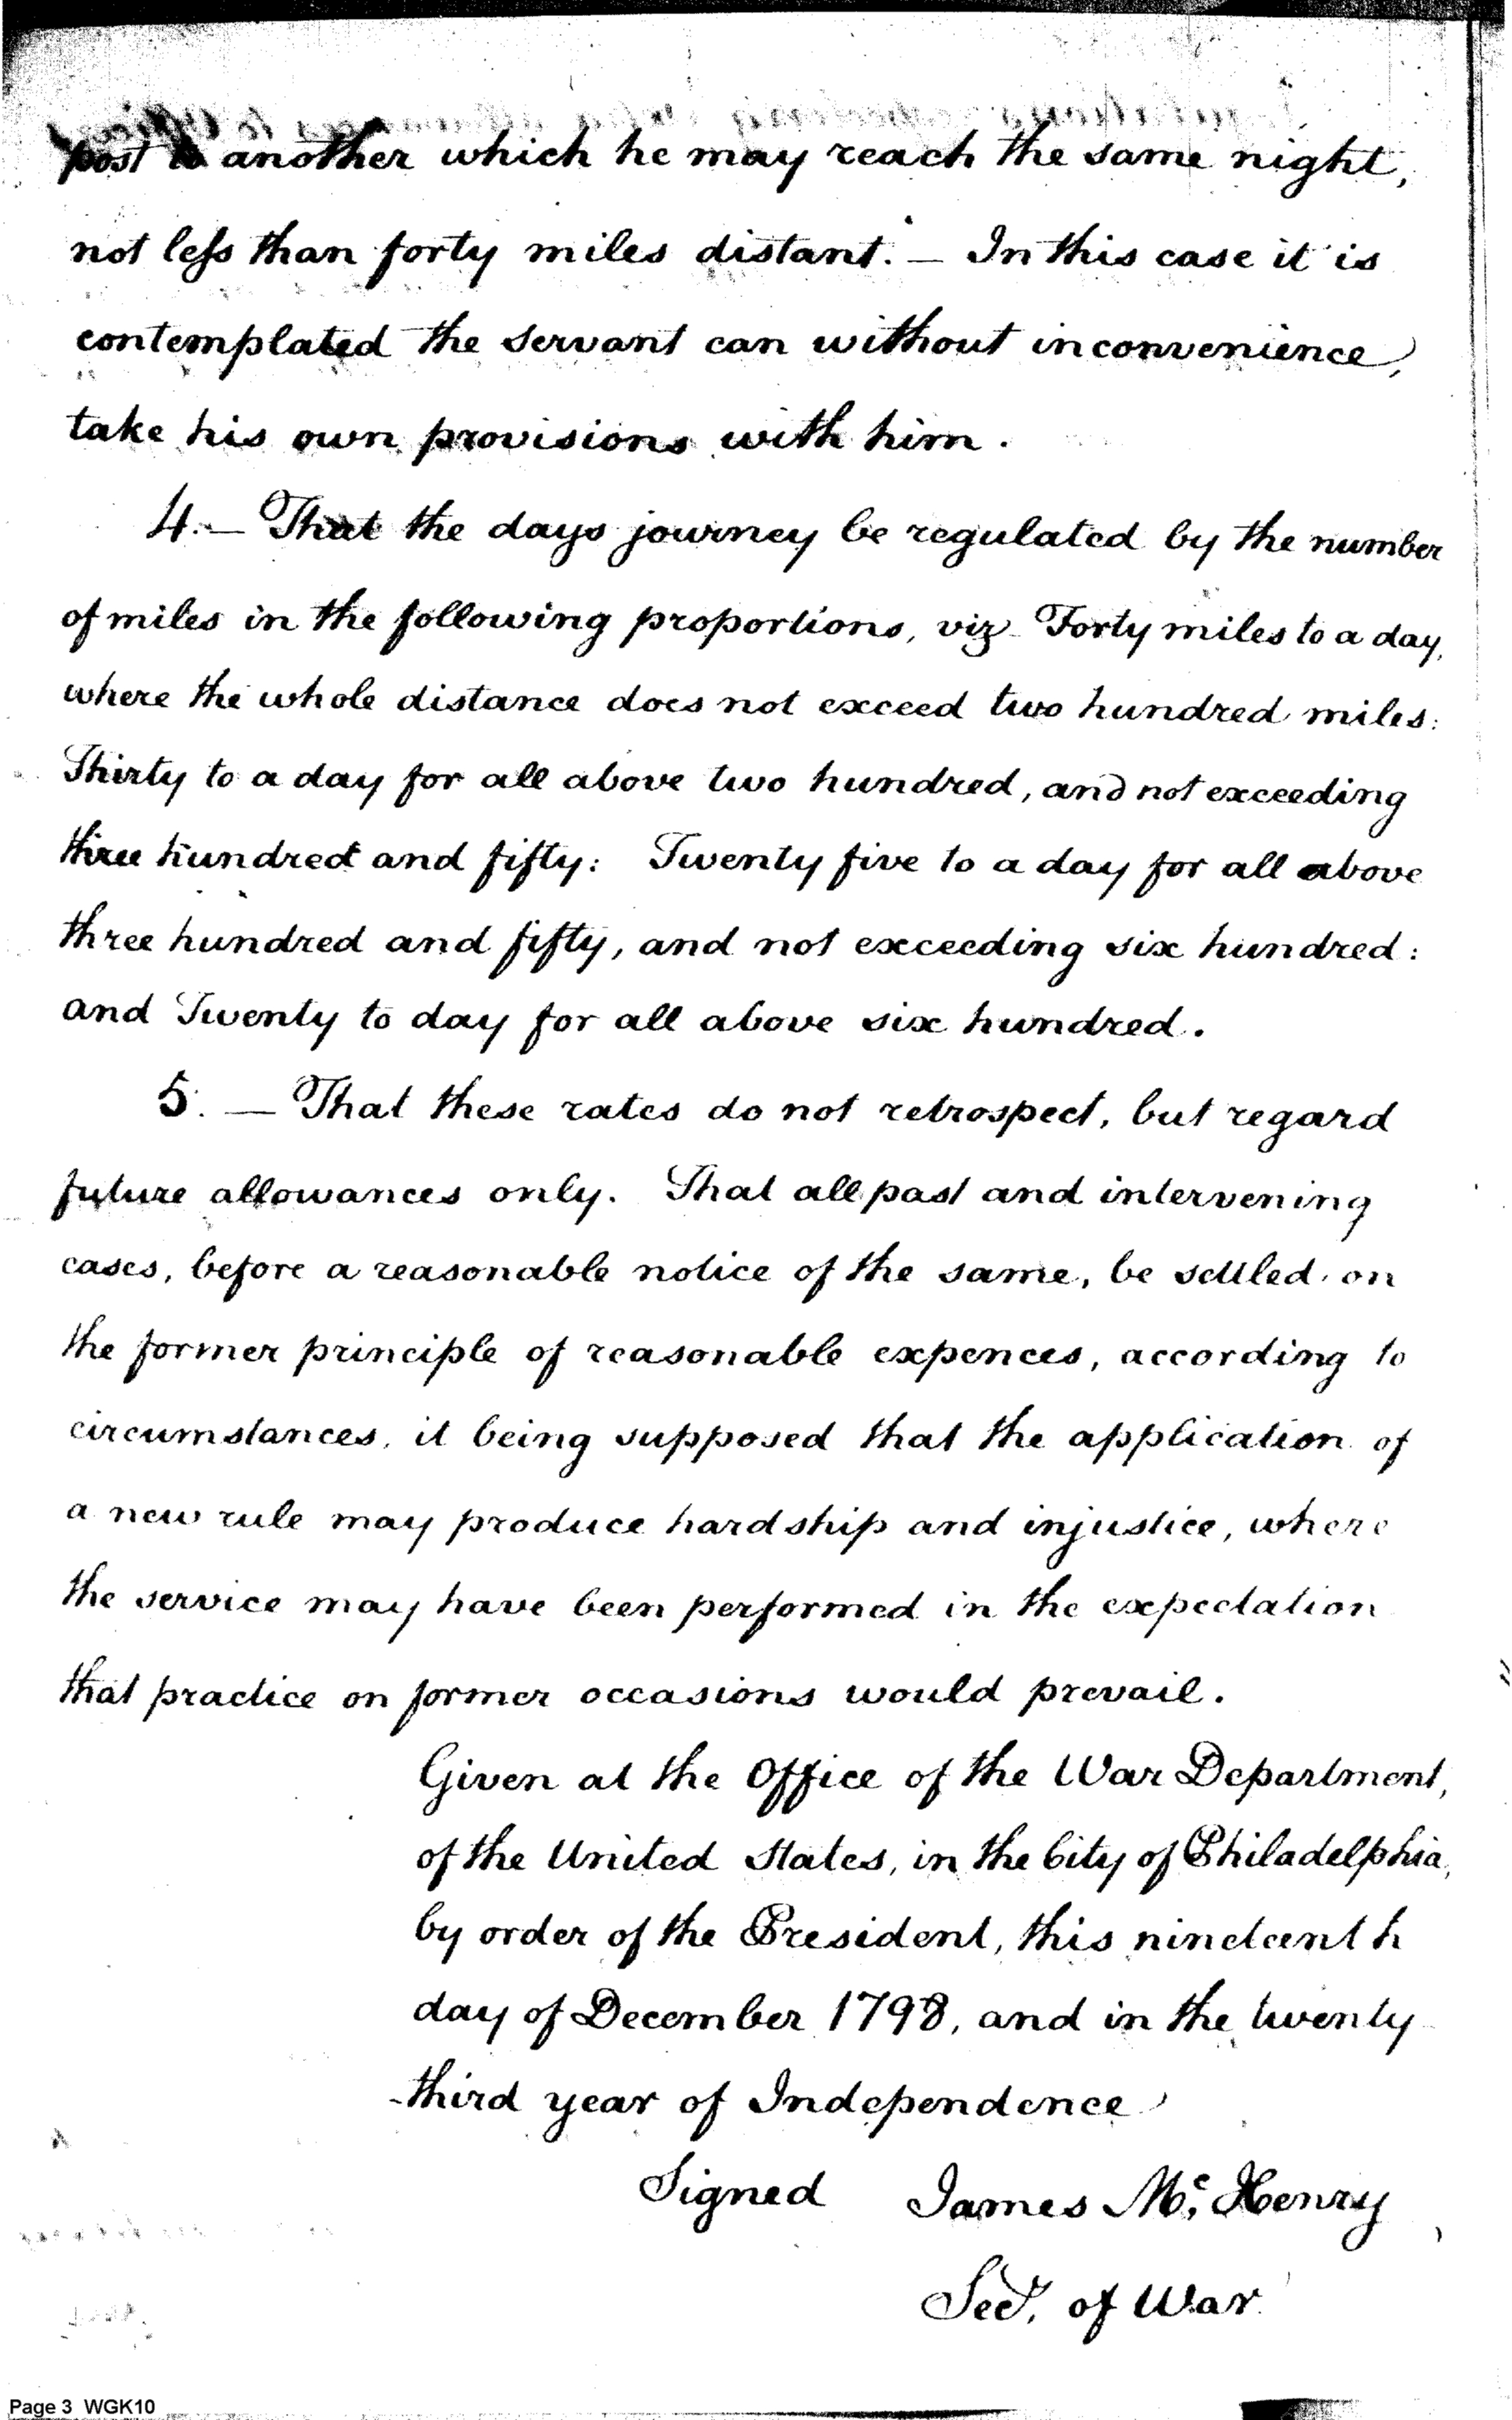 post to another which he may reach the same night,
not less than forty miles distant. — In this case it is
contemplated the servant can without inconvenience,
take his own provisions with him.
4. — That the days journey be regulated by the number
of miles in the following proportions, viz Forty miles to a day,
where the whole distance does not exceed two hundred miles:
Thirty to a day for all above two hundred, and not exceeding
three hundred and fifty: Twenty five to a day for all above
three hundred and fifty, and not exceeding six hundred:
and Twenty to day for all above six hundred.
5. — That these rates do not retrospect, but regard
future allowances only. That all past and intervening
cases, before a reasonable notice of the same, be settled on
the former principle of reasonable expences, according to
circumstances, it being supposed that the application of
a new rule may produce hardship and injustice, where
the service may have been performed in the expectation
that practice on former occasions would prevail.
Given at the Office of the War Department,
of the United States, in the City of Philadelphia,
by order of the President, this nineteenth
day of December 1798, and in the twenty
-third year of Independence
Signed James Mc. Henry
Secy. of War
Page 3 WGK10